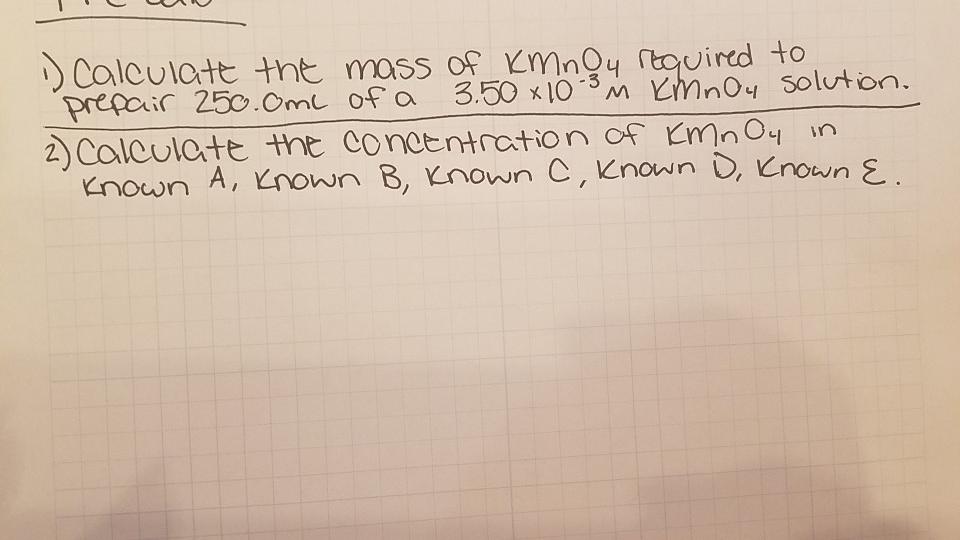 1) Calculate the mass of KMnO4 required to
prepair 250.0mL of a 3.50 x10⁻³ M KMnO4 solution.
2) Calculate the concentration of KMnO4 in
Known A, Known B, Known C, Known D, Known E.